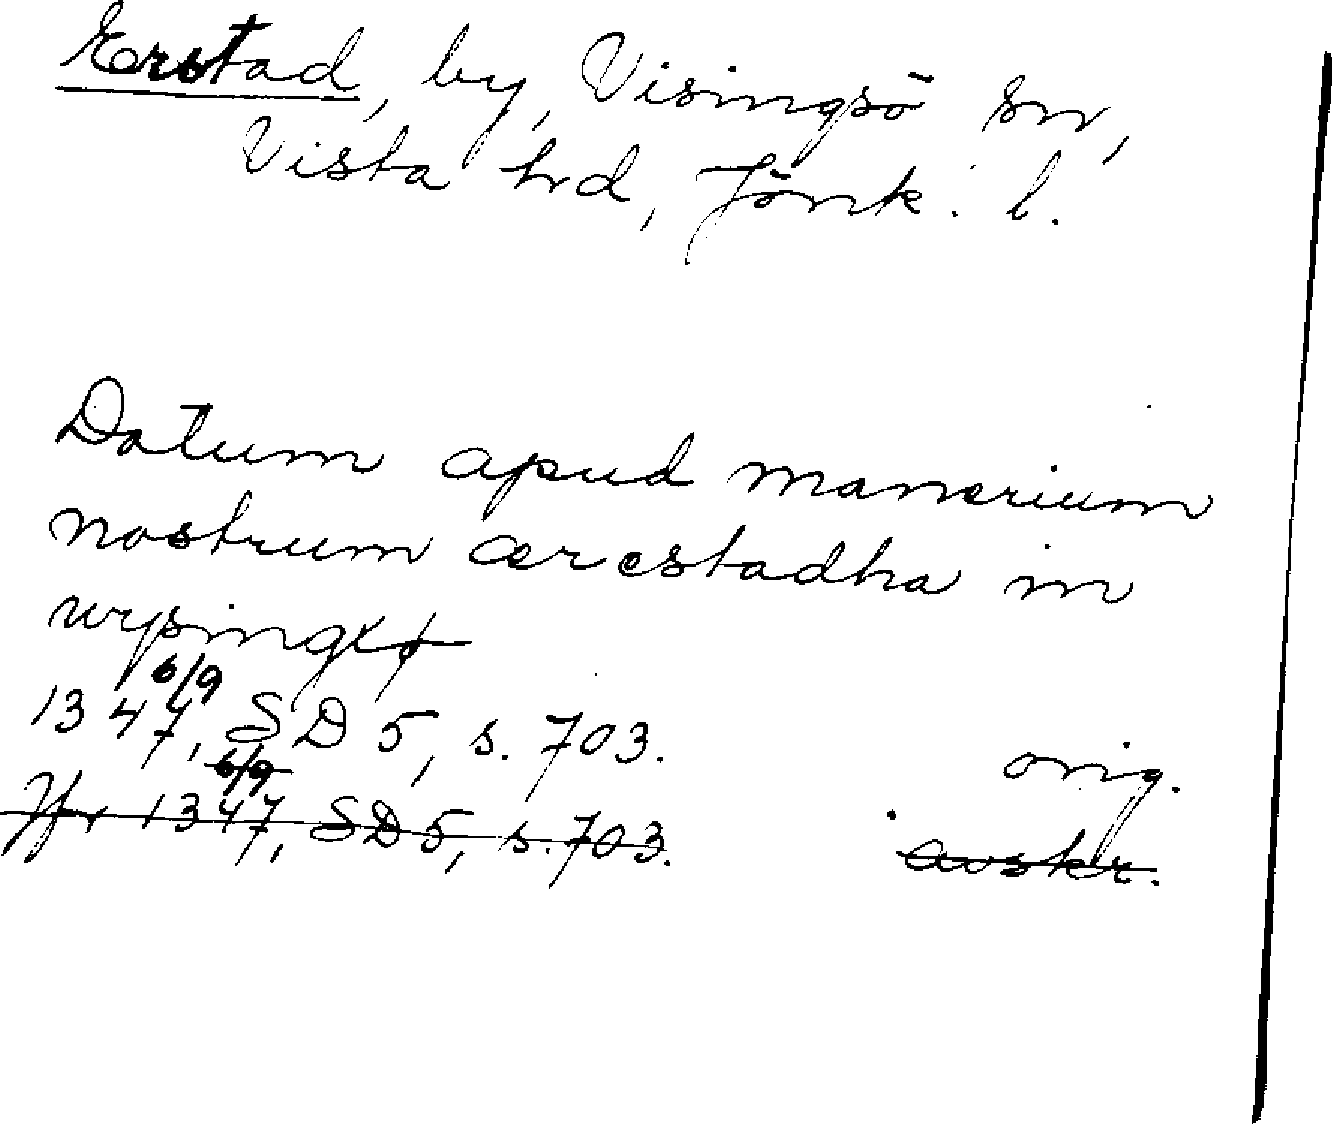 Erstad, by, Visingsö sn,
Vista hd, Jönk. l.
Datum apud manerium
nostrum ærestadha in
wysingxø
1347 6/9, SD 5, s. 703. orig.
Jfr 1347 6/9, SD 5, s. 703. avskr.